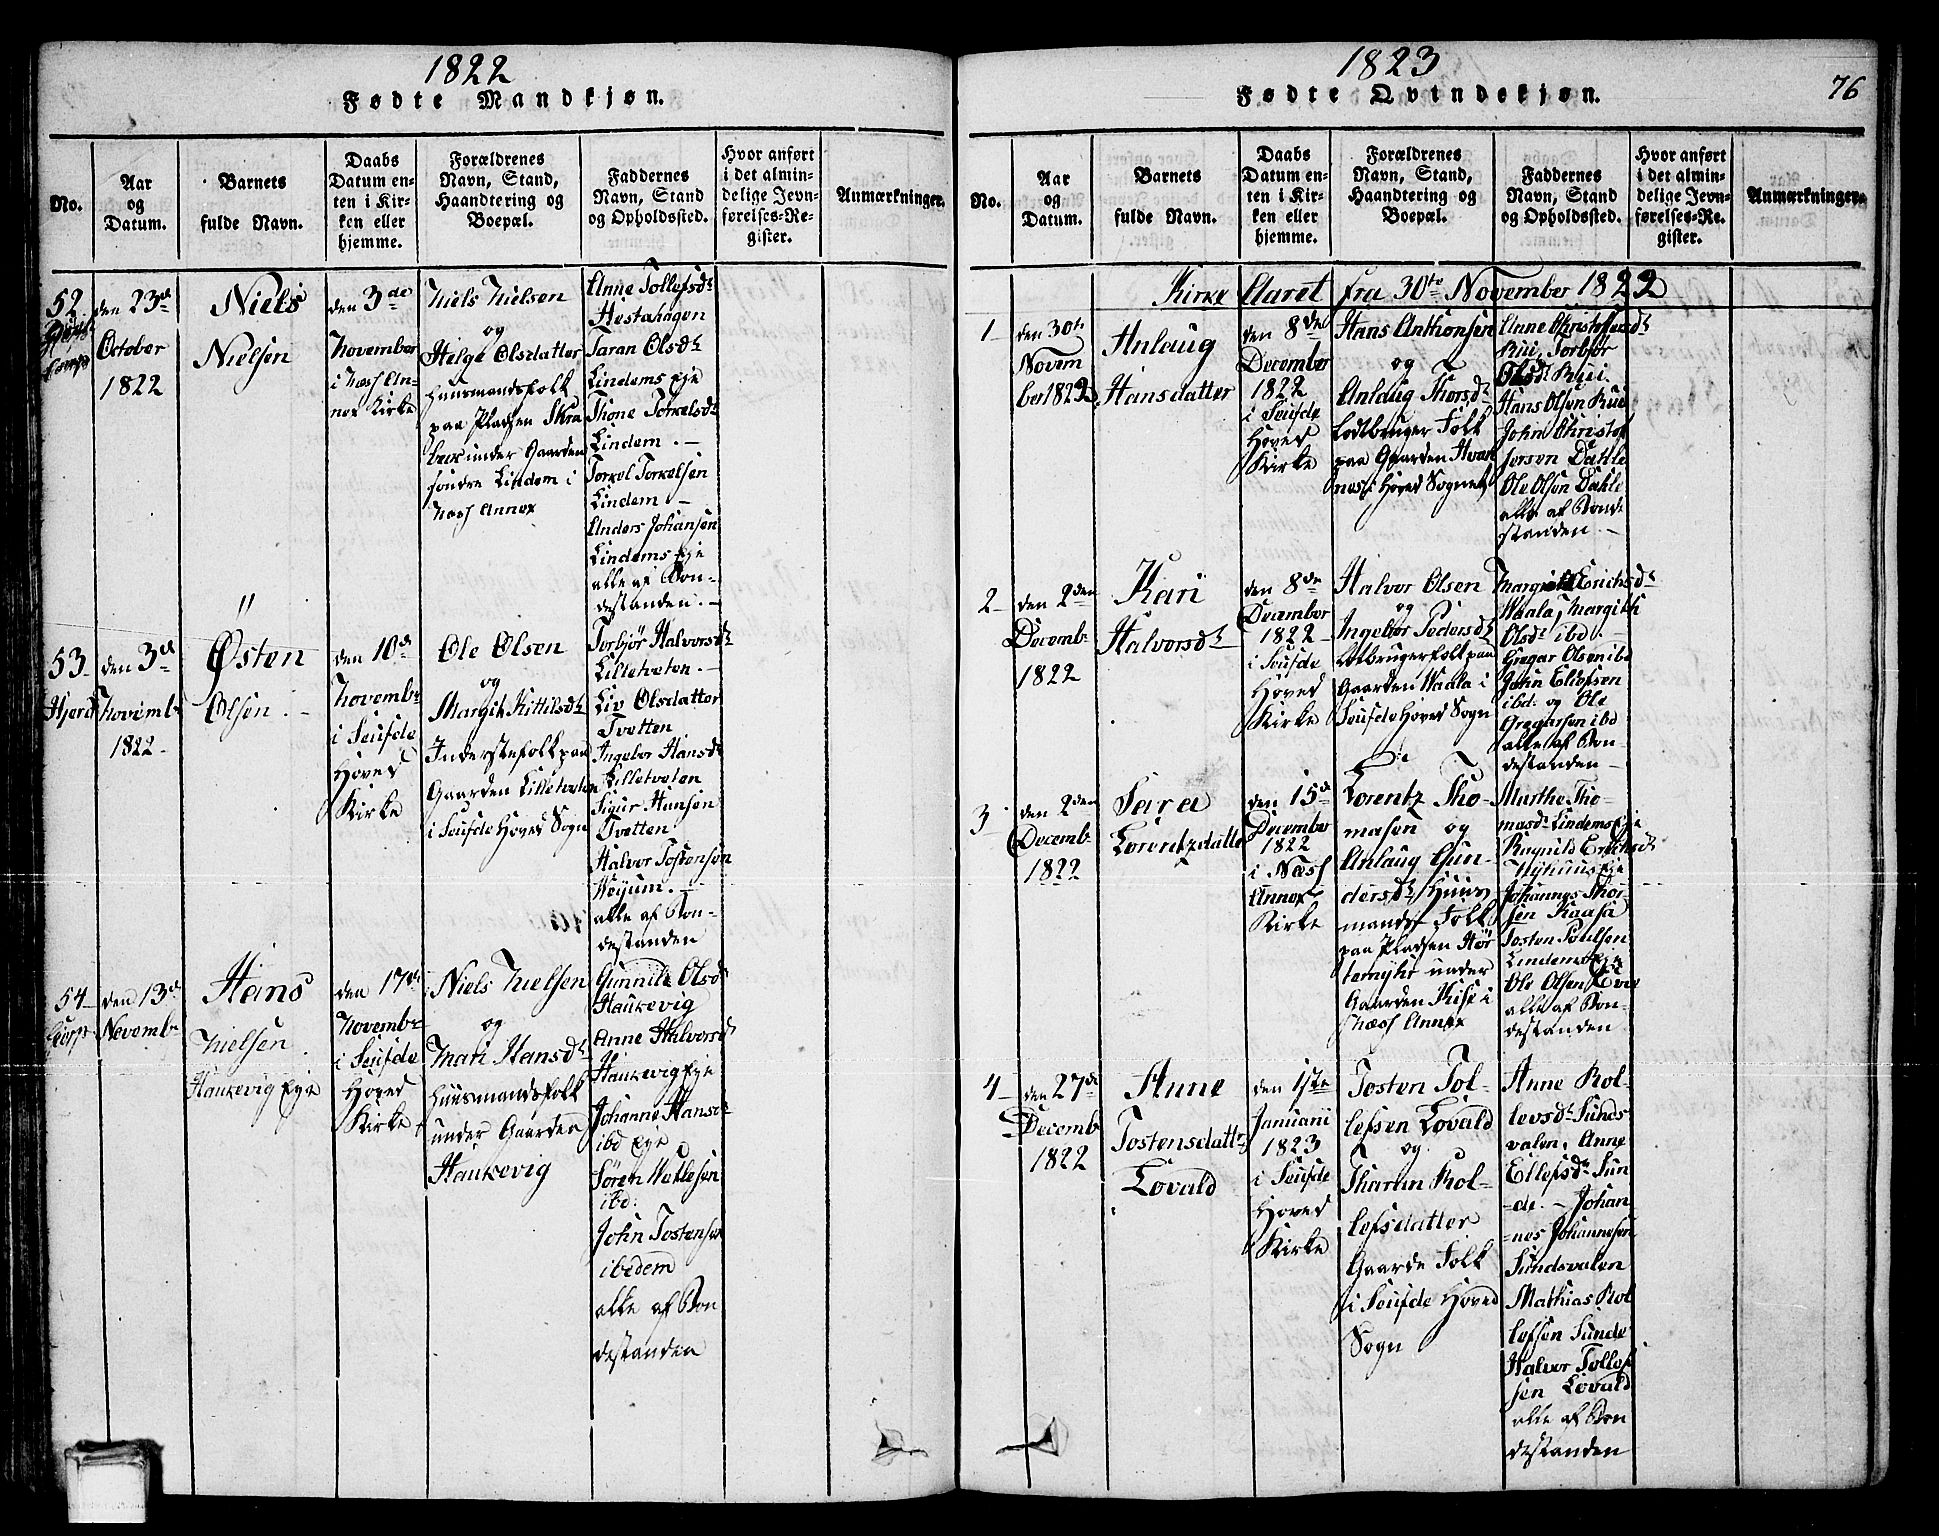 1822
Fødte Mandkjøn.
No.
Aar
og
Datum.
Barnets
fulde Navn.
Daabs
Datum en-
ten i Kir-
ken eller
hjemme.
Forældrenes
Navn, Stand,
Haandtering og
Boepæl.
Faddernes
Navn, Stand
og Opholdssted.
Hvor anført
i det almin-
delige Jevn-
førelses-Re-
gister.
Anmærkninger.
52.
den 23de
October
1822
Niels
Nielsen
den 3de
November
i Næss An-
nex Kirke
Niels Nielsen
og
Helge Olsdatter
Huusmandsfolk
paa Pladsen Skra
under Gaarden
søndre Lindem i
Næss Annex
Anne Tollefsdr
Hestehagen
Taran Olsdr
Lindems Eje
Thone Torkelsdr
Lindem. —
Torkel Torkelsen
Lindem —
Anders Johansen
Lindems Eje
alle af Bon-
destanden. —
53.
Hjerd
den 3de
Novembr
1822.
Østen
Olsen. —
den 10de
Novembr
i Seufde
Hoved
Kirke
Ole Olsen
og
Margit Kittilsdr
Inderstefolk paa
Gaarden Lilletveten
i Seufde Hoved Sogn
Torbjør Halvorsdr
Lilletveten. —
Liv Olsdatter
Tvetten
Ingebor Hansdr
Lilletveten
Sigur Hansen
Tvetten
Halvor Tostensen
Høyum. —
alle af Bon-
destanden
54
den 13de
Novembr
Hans
Nielsen
Haukevig Eje
den 17de
Novembr
i Seufde
Hoved
Kirke
Niels Nielsen
og
Mari Hansdr
Huusmandsfolk
under Gaarden
Haukevig
Gunnild Olsdr
Haukevig
Anne Halvorsdr
Haukevig Eje
Johanne Hansdr
ibd Eje
Søren Wetlesen
ibd.
John Tostensen
ibidem
alle af Bon
destanden
1823
76
Fødte Qvindekjøn.
No.
Aar
og
Datum.
Barnets
fulde Navn.
Daabs
Datum en-
ten i Kir-
ken eller
hjemme.
Forældrenes
Navn, Stand,
Haandtering og
Boepæl.
Faddernes
Navn, Stand
og Opholdssted.
Hvor anført
i det almin-
delige Jevn-
førelses-Re-
gister.
Anmærkninger.
Kirke Aaret fra 30te November 1822
1
den 30te
Novem
ber 1822
Anlaug
Hansdatter
den 8de
December
1822
i Seufde
Hoved
Kirke
Hans Anthonsen
og
Anlaug Thorsdr
Lodbruger Folk
paa Gaarden Hvart
næs i Hoved Sognet
Anne Christoffersdr
Rui, Torbjør
Olsdr Rui.
Hans Olsen Rue
John Christof
fersen Dahle
Ole Olsen Dahle
alle af Bonde
standen. —
2
den 2den
Decembr
1822
Kari
Halvorsdr
den 8de
December
1822
i Seufde
Hoved
Kirke
Halvor Olsen
og
Ingebor Pedersdr
Lodbrugerfolk paa
Gaarden Waala i
Seufde Hoved Sogn
Margit Erichsdr
Waala, Margith
Olsdr ibd. —
Gregar Olsen ibd
John Ellefsen
ibd. og Ole
Gregarsen ibd
alle af Bon-
destanden —
3
den 2den
Decemb.
1822
Sara
Lorentzdatter
den 15de
December
1822
i Næss
Annex
Kirke
Lorentz Tho-
masen og
Anlaug Gun-
dersdr Huus
mands Folk
paa Pladsen Hør
temyhr under
Gaarden Kise i
Næss Annex
Marthe Tho-
masdr Lindems Eje
Ragnild Erichsdr
Nyhuus Eje
Johannes Thor-
sen Kaasa
Tosten Poulsen
Lindems Eje
Ole Olsen
alle af Bon-
destanden
4
den 27de
Decembr
1822
Anne
Tostensdattr
Lovald
den 1ste
Januarii
1823
i Seufde
Hoved
Kirke
Tosten Tol-
lefsen Lovald
og
Tharan Rol-
lefsdatter
Gaarde Folk
i Seufde Hoved
Sogn
Anne Rol-
levsdr Sunds
valen, Anne
Ellefsdr Sun
-de. — Johan
-nes Johannesen
Sundsvalen
Mathias Rol
lefsen Sunde
Halvor Tollef
sen Lovald
alle af Bon
destanden